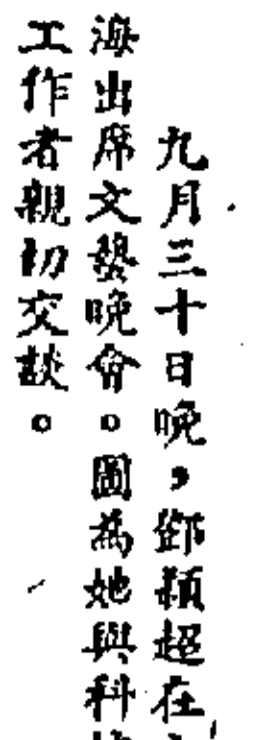 九月三十日晚，鄧穎超在
海出席文藝晚會。圖為她與科
工作者親切交談。